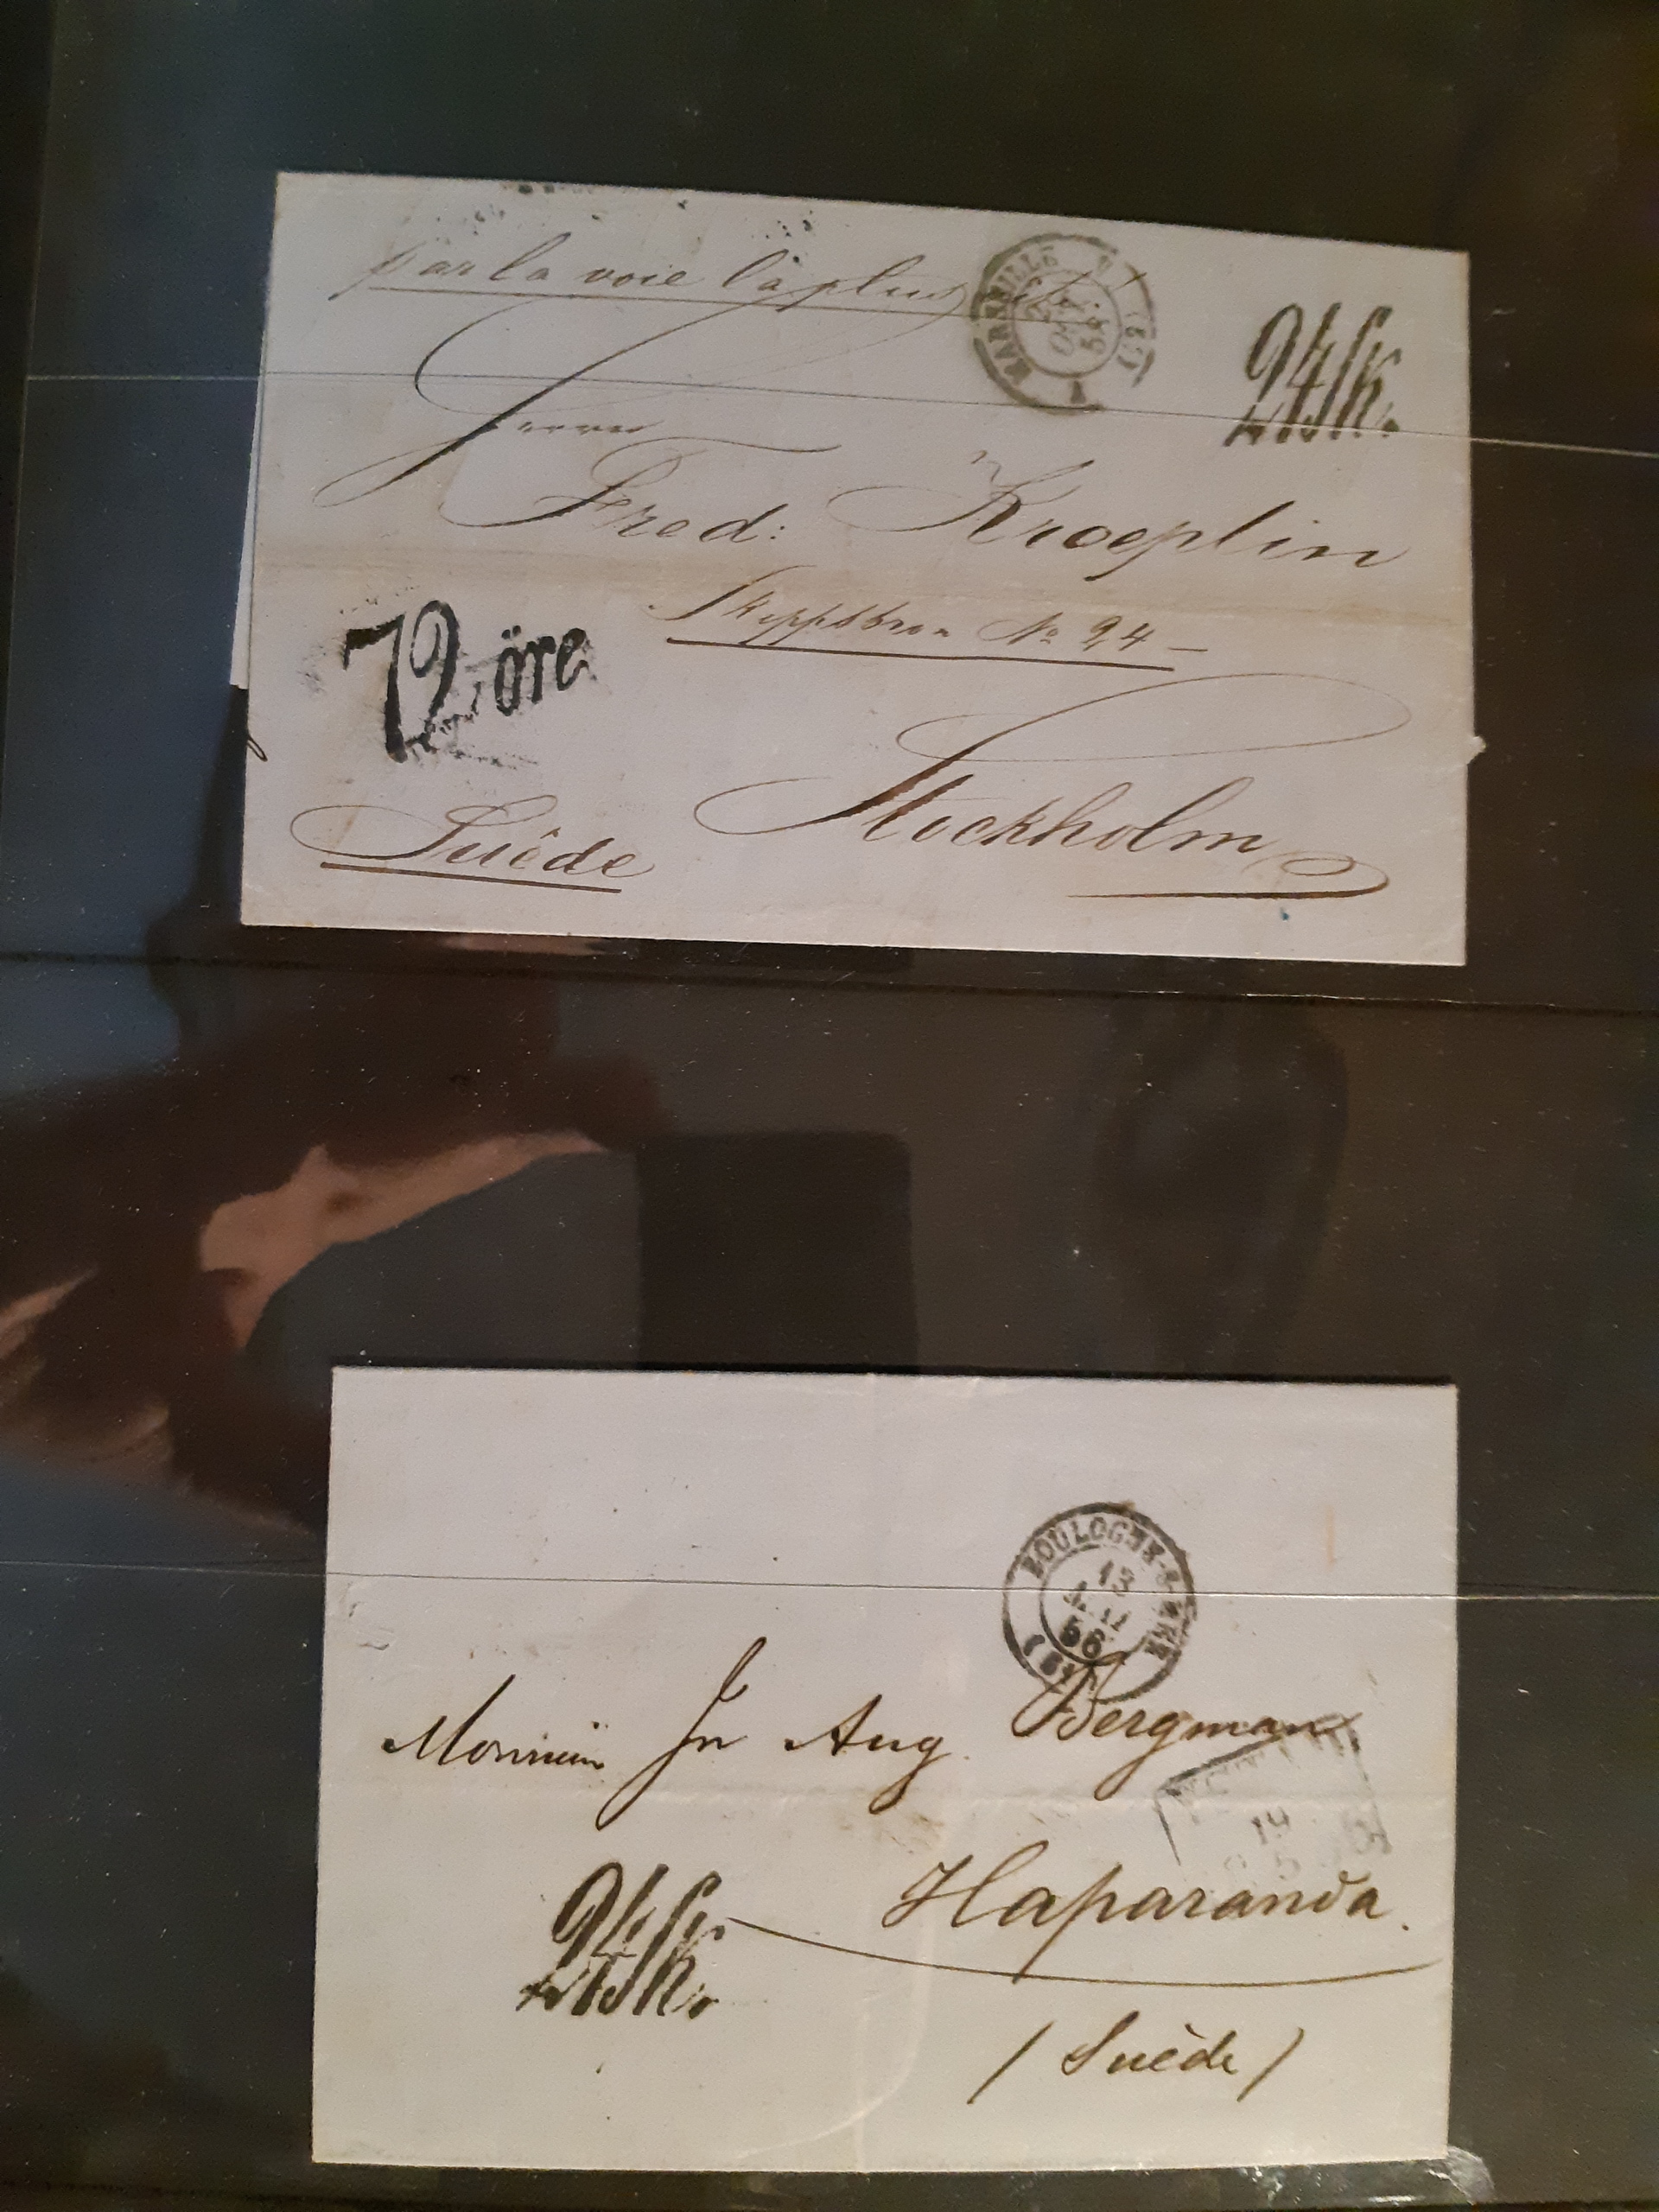 par la voie la plus
MARSEILLE
24 Sk.
OCT.
58
Herrn
Fred: Kroeplin
Skeppsbron No 24 —
72 öre
Stockholm
Suède
BOULOGNE-S-MER
13
56
Monsieur Jn Aug. Bergman
19
24 Sk.
Haparanda.
/ Suède /